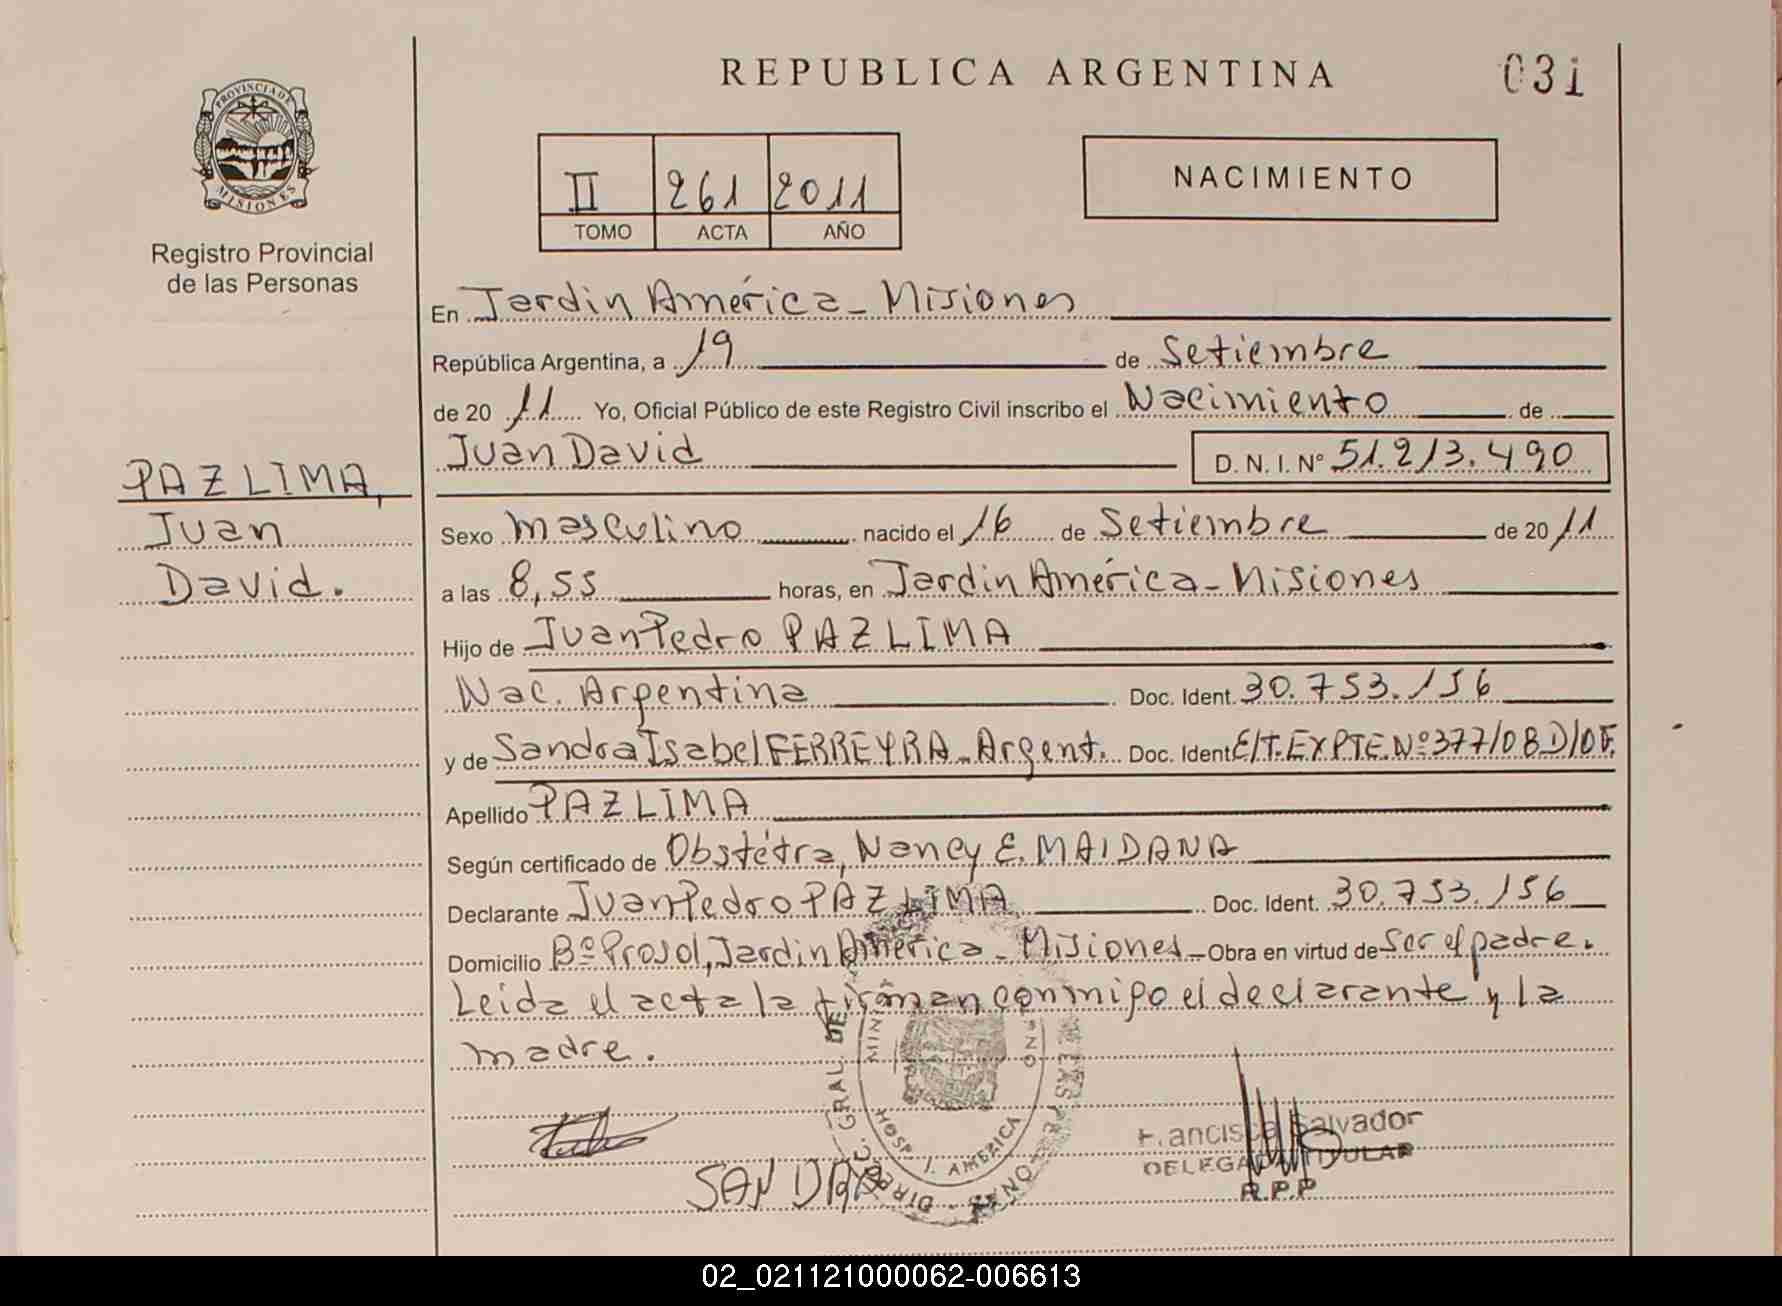 REPUBLICA ARGENTINA
031
PROVINCIA DE
MISIONES
Registro Provincial
de las Personas
II 261 2011
TOMO ACTA AÑO
NACIMIENTO
En Jardin América - Misiones
República Argentina, a 19 de Setiembre
de 20 11 Yo, Oficial Público de este Registro Civil inscribo el Nacimiento de
Juan David D. N. I. Nº 51.213.490
PAZ LIMA,
Juan
David.
Sexo masculino nacido el 16 de Setiembre de 20 11
a las 8,55 horas, en Jardin América - Misiones
Hijo de Juan Pedro PAZ LIMA
Nac. Argentina Doc. Ident. 30.753.156
y de Sandra Isabel FERREYRA - Argent. Doc. Ident E/T. EXPTE. Nº 377/08 D/OF.
Apellido PAZ LIMA
Según certificado de Obstétra, Nancy E. MAIDANA
Declarante Juan Pedro PAZ LIMA Doc. Ident. 30.753.156
Domicilio Bº Prosol, Jardin América - Misiones - Obra en virtud de ser el padre.
Leida el acta la firman conmigo el declarante y la
madre.
HOSP. J. AMERICA
SANDRA
Francisca Salvador
DELEGADA TITULAR
R.P.P
02_021121000062-006613